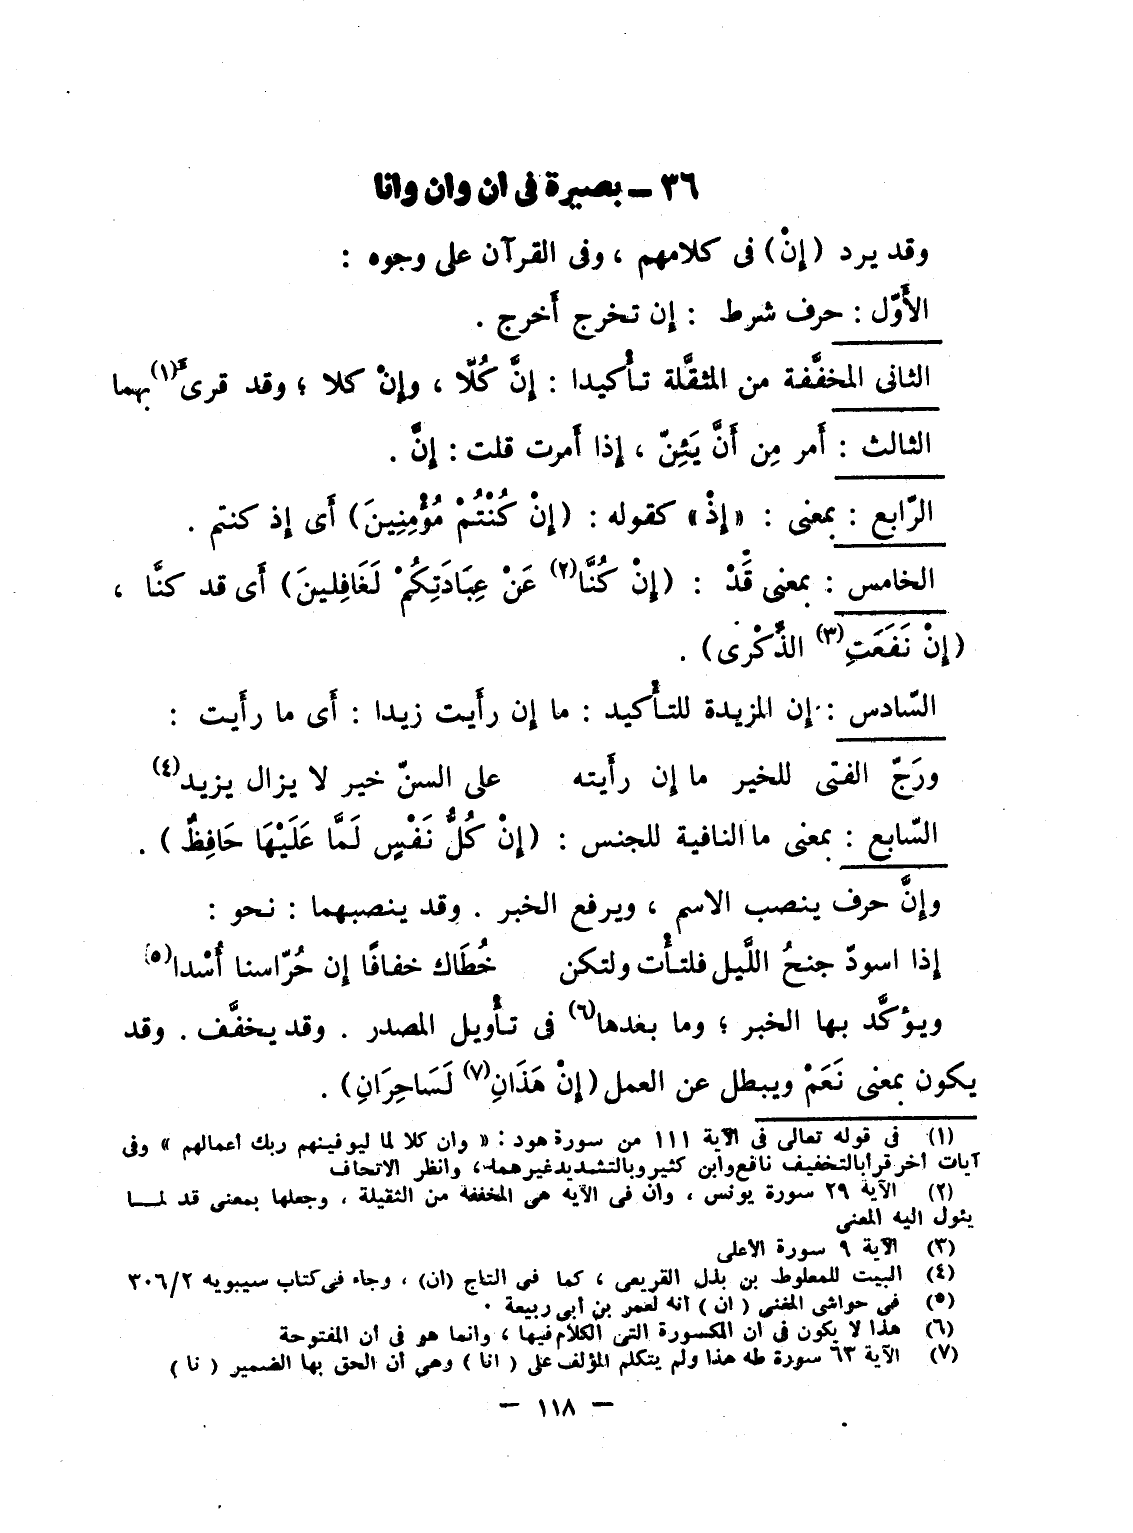 ٣٦ – بصيرة فى ان وان وانا
وقد يرد (إنْ) فى كلامهم ، وفى القرآن على وجوه :
الأَوّل : حرف شرط : إن تخرج أَخرج .
الثانى المخفَّفة من المثقَّلة تأْكيدا : إنَّ كُلّا ، وإنْ كلا ؛ وقد قرئَ(١) بهما
الثالث : أَمر مِن أَنَّ يَئِنّ ، إذا أَمرت قلت : إنَّ .
الرّابع : بمعنى : «إذْ» كقوله : (إنْ كُنْتُمْ مُؤْمِنِينَ) أَى إذ كنتم .
الخامس : بمعنى قَدْ : (إنْ كُنَّا(٢) عَنْ عِبَادَتِكُمْ لَغَافِلينَ) أَى قد كنَّا ،
(إنْ نَفَعَتِ(٣) الذِّكْرى) .
السّادس : إن المزيدة للتأْكيد : ما إن رأَيت زيدا : أَى ما رأَيت :
ورَجّ الفتى للخير ما إن رأَيته على السنّ خير لا يزال يزيد(٤)
السّابع : بمعنى ما النافية للجنس : (إنْ كُلُّ نَفْسٍ لَمَّا عَلَيْهَا حَافِظٌ ) .
وإنَّ حرف ينصب الاسم ، ويرفع الخبر . وقد ينصبهما : نحو :
إذا اسودّ جنحُ اللَّيل فلتأْت ولتكن خُطَاك خفافًا إن حُرّاسنا أُسْدا(٥)
ويؤكَّد بها الخبر ؛ وما بعدها(٦) فى تأْويل المصدر . وقد يخفَّف . وقد
يكون بمعنى نَعَمْ ويبطل عن العمل (إنْ هَذَانِ(٧) لَسَاحِرَانِ) .
(١) فى قوله تعالى فى الآية ١١١ من سورة هود : « وان كلا لما ليوفينهم ربك أعمالهم » وفى
آيات أخر قرأ بالتخفيف نافع وابن كثير وبالتشديد غيرهما ، وانظر الاتحاف
(٢) الآية ٢٩ سورة يونس ، وان فى الآيه هى المخففة من الثقيلة ، وجعلها بمعنى قد لمــا
يئول اليه المعنى
(٣) الآية ٩ سورة الأعلى
(٤) البيت للمعلوط بن بذل القريعى ، كما فى التاج (ان) ، وجاء فى كتاب سيبويه ٣٠٦/٢
(٥) فى حواشى المغنى ( ان ) انه لعمر بن أبى ربيعة .
(٦) هذا لا يكون فى ان المكسورة التى الكلام فيها ، وانما هو فى أن المفتوحة
(٧) الآية ٦٣ سورة طه هذا ولم يتكلم المؤلف على ( انا ) وهى أن الحق بها الضمير ( نا )
– ١١٨ –